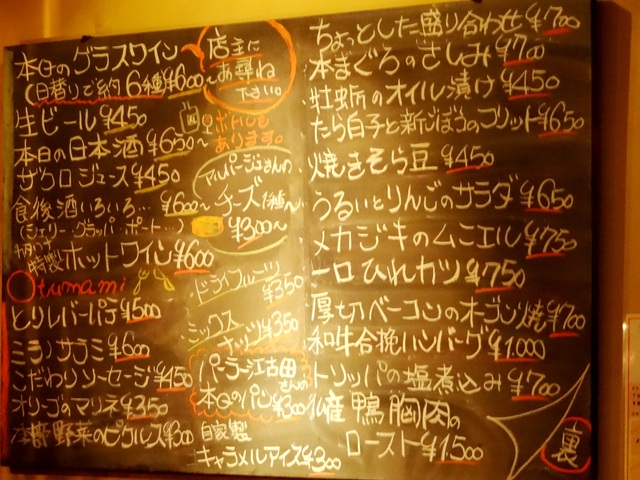 本日のグラスワイン
(日替りで約6種¥600〜
店主に
お尋ね
下さい。
生ビール¥450
ボトルも
あります。
本日の日本酒¥650〜
ザクロジュース¥450
食後酒いろいろ… ¥600〜
(シェリー・グラッパ・ポート…)
特製ホットワイン¥600
アルパージュさんの
チーズ1種〜
¥300〜
Otumami
とりレバーパテ¥500
ミラノサラミ¥600
こだわりソーセージ¥450
オリーブのマリネ¥350
野菜のピクルス¥300
ドライフルーツ
¥350
ミックス
ナッツ¥350
パーラー江古田
さんの
本日のパン¥300
自家製
キャラメルアイス¥300
ちょっとした盛り合わせ¥700
本まぐろのさしみ¥700
牡蛎のオイル漬け¥450
たら白子と新ごぼうのフリット¥650
焼きそら豆¥450
うるいとりんごのサラダ¥650
メカジキのムニエル¥750
一口ひれカツ¥750
厚切ベーコンのオーブン焼¥700
和牛合挽ハンバーグ¥1,000
トリッパの塩煮込み¥700
仏産鴨胸肉の
ロースト¥1,500
裏